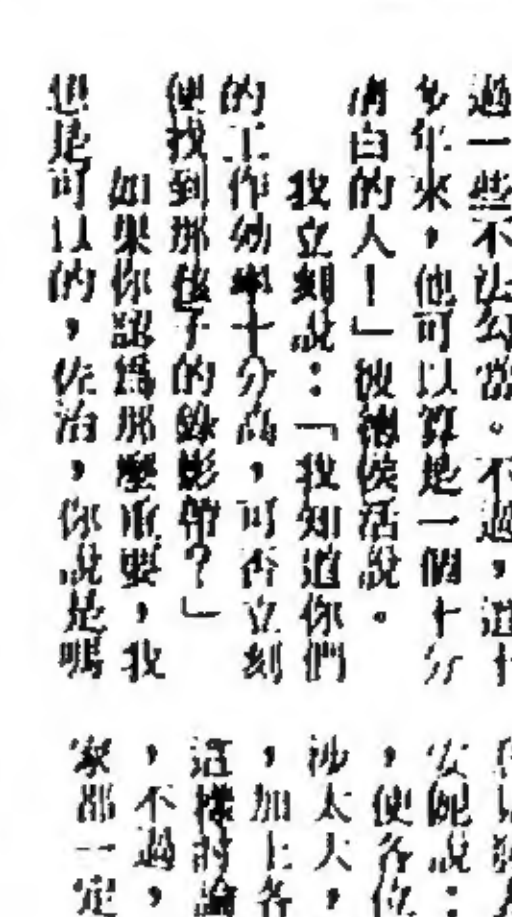 過一些不法勾當。不過，這十
多年來，他可以算是一個十分
清白的人！」彼得侯活說。
我立刻說：「我知道你們
的工作効率十分高，可否立刻
便找到那孩子的錄影帶？」
如果你認爲那麼重要，我
想是可以的，佐治，你說是嗎
安妮說：
，使各位
沙太太，
，加上各
這樣討論
，不過，
家都一定